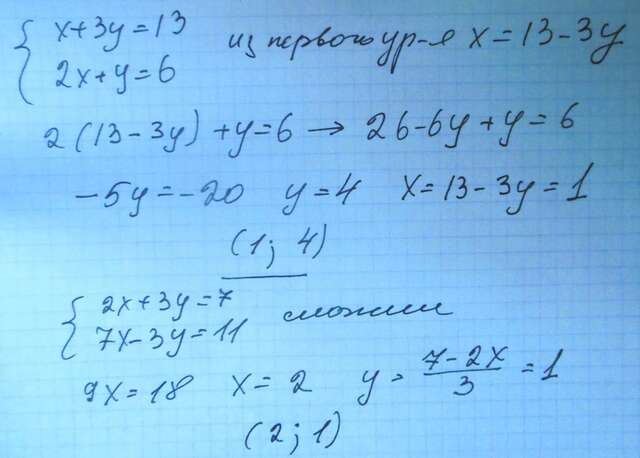 x+3y=13
2x+y=6 из первого ур-я x=13-3y
2(13-3y)+y=6 → 26-6y+y=6
-5y=-20 y=4 x=13-3y=1
(1; 4)
2x+3y=7
7x-3y=11 сложим
9x=18 x=2 y=(7-2x)/3=1
(2; 1)